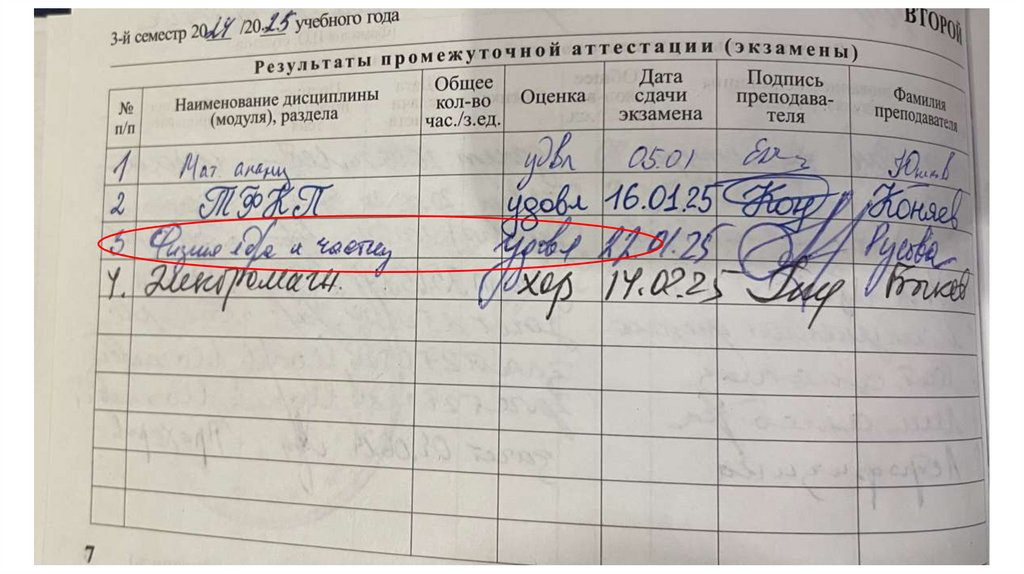 ВТОРОЙ
3-й семестр 2024 /2025 учебного года
Результаты промежуточной аттестации (экзамены)
№ п/п Наименование дисциплины (модуля), раздела Общее кол-во час./з.ед. Оценка Дата сдачи экзамена Подпись преподава-теля Фамилия преподавателя
1 Мат. анализ удвл 05.01
2 ТФКП удовл 16.01.25 Кон Коняев
3 Физика ядра и частиц удовл 22.01.25
4. Электромагн. хор 14.02.25 Быков
7